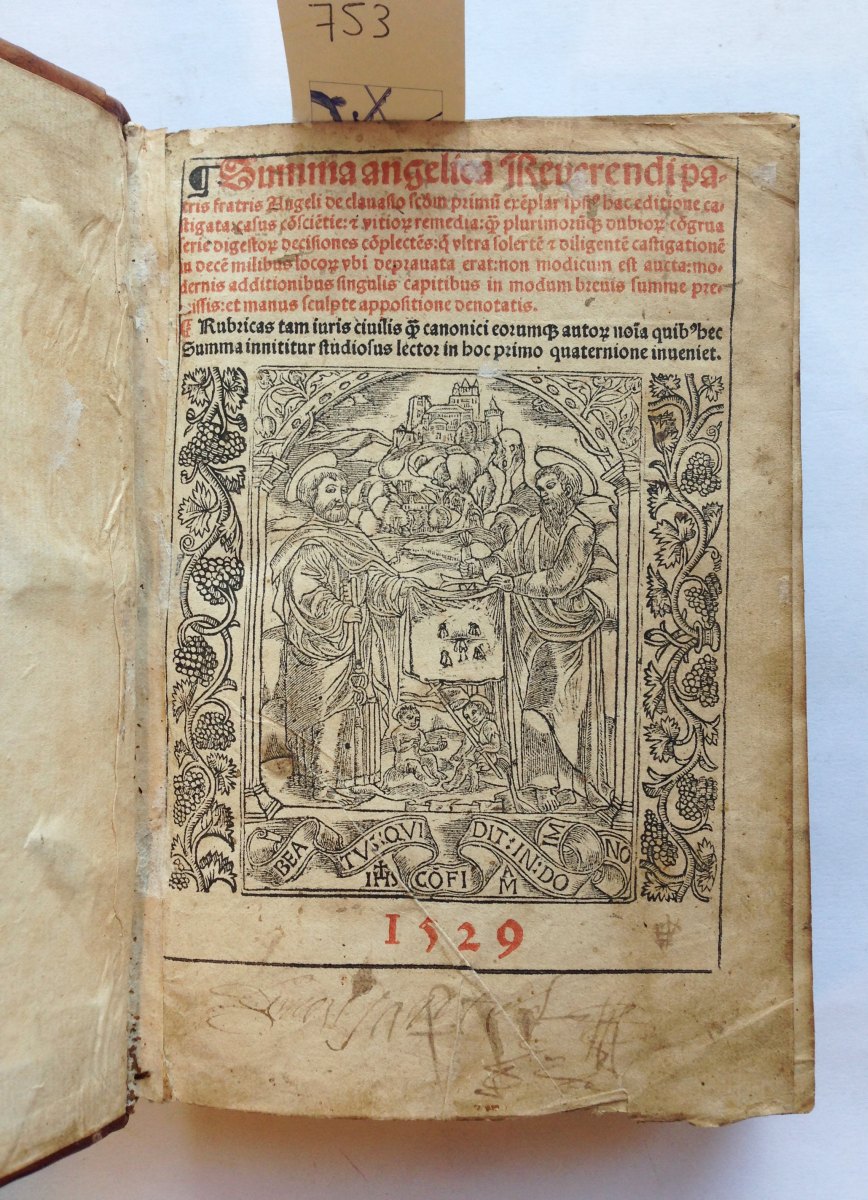 753
¶ Summa angelica Reverendi pa-
tris fratris Angeli de clauasio scd̄m primū exēplar ipsiꝰ hac editione ca-
stigata: casus cōsciētie: ⁊ vitioꝝ remedia: qꝫ̄ plurimorūqꝫ dubioꝝ cōgrua
serie digestoꝝ decisiones cōplectēs: q̄ vltra solertē ⁊ diligentē castigationē
in decē milibus locoꝝ vbi deprauata erat: non modicum est aucta: mo-
dernis additionibus singulis capitibus in modum breuis summe pre-
issis: et manus sculpte appositione denotatis.
¶ Rubricas tam iuris ciuilis qꝫ̄ canonici eorumqꝫ autoꝝ noīa quibꝰ hec
Summa innititur studiosus lector in hoc primo quaternione inueniet.
BEA TVS: QVI DIT: IN: DO IM NO
IHS CŌFI A M
1529